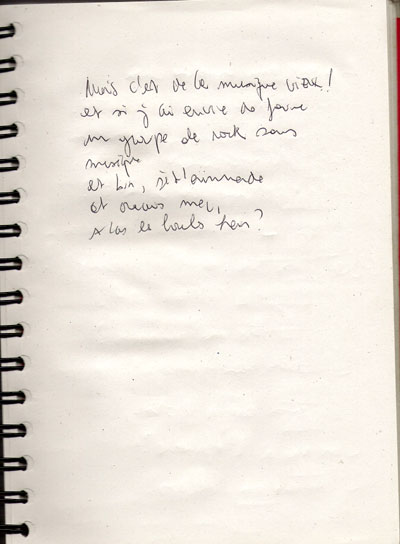 Mais c'est de la musique vieux!
et si j'ai envie de faire
un groupe de rock sans
musique
et bin, je t'emmerde
et ouais mec,
les boules hein?